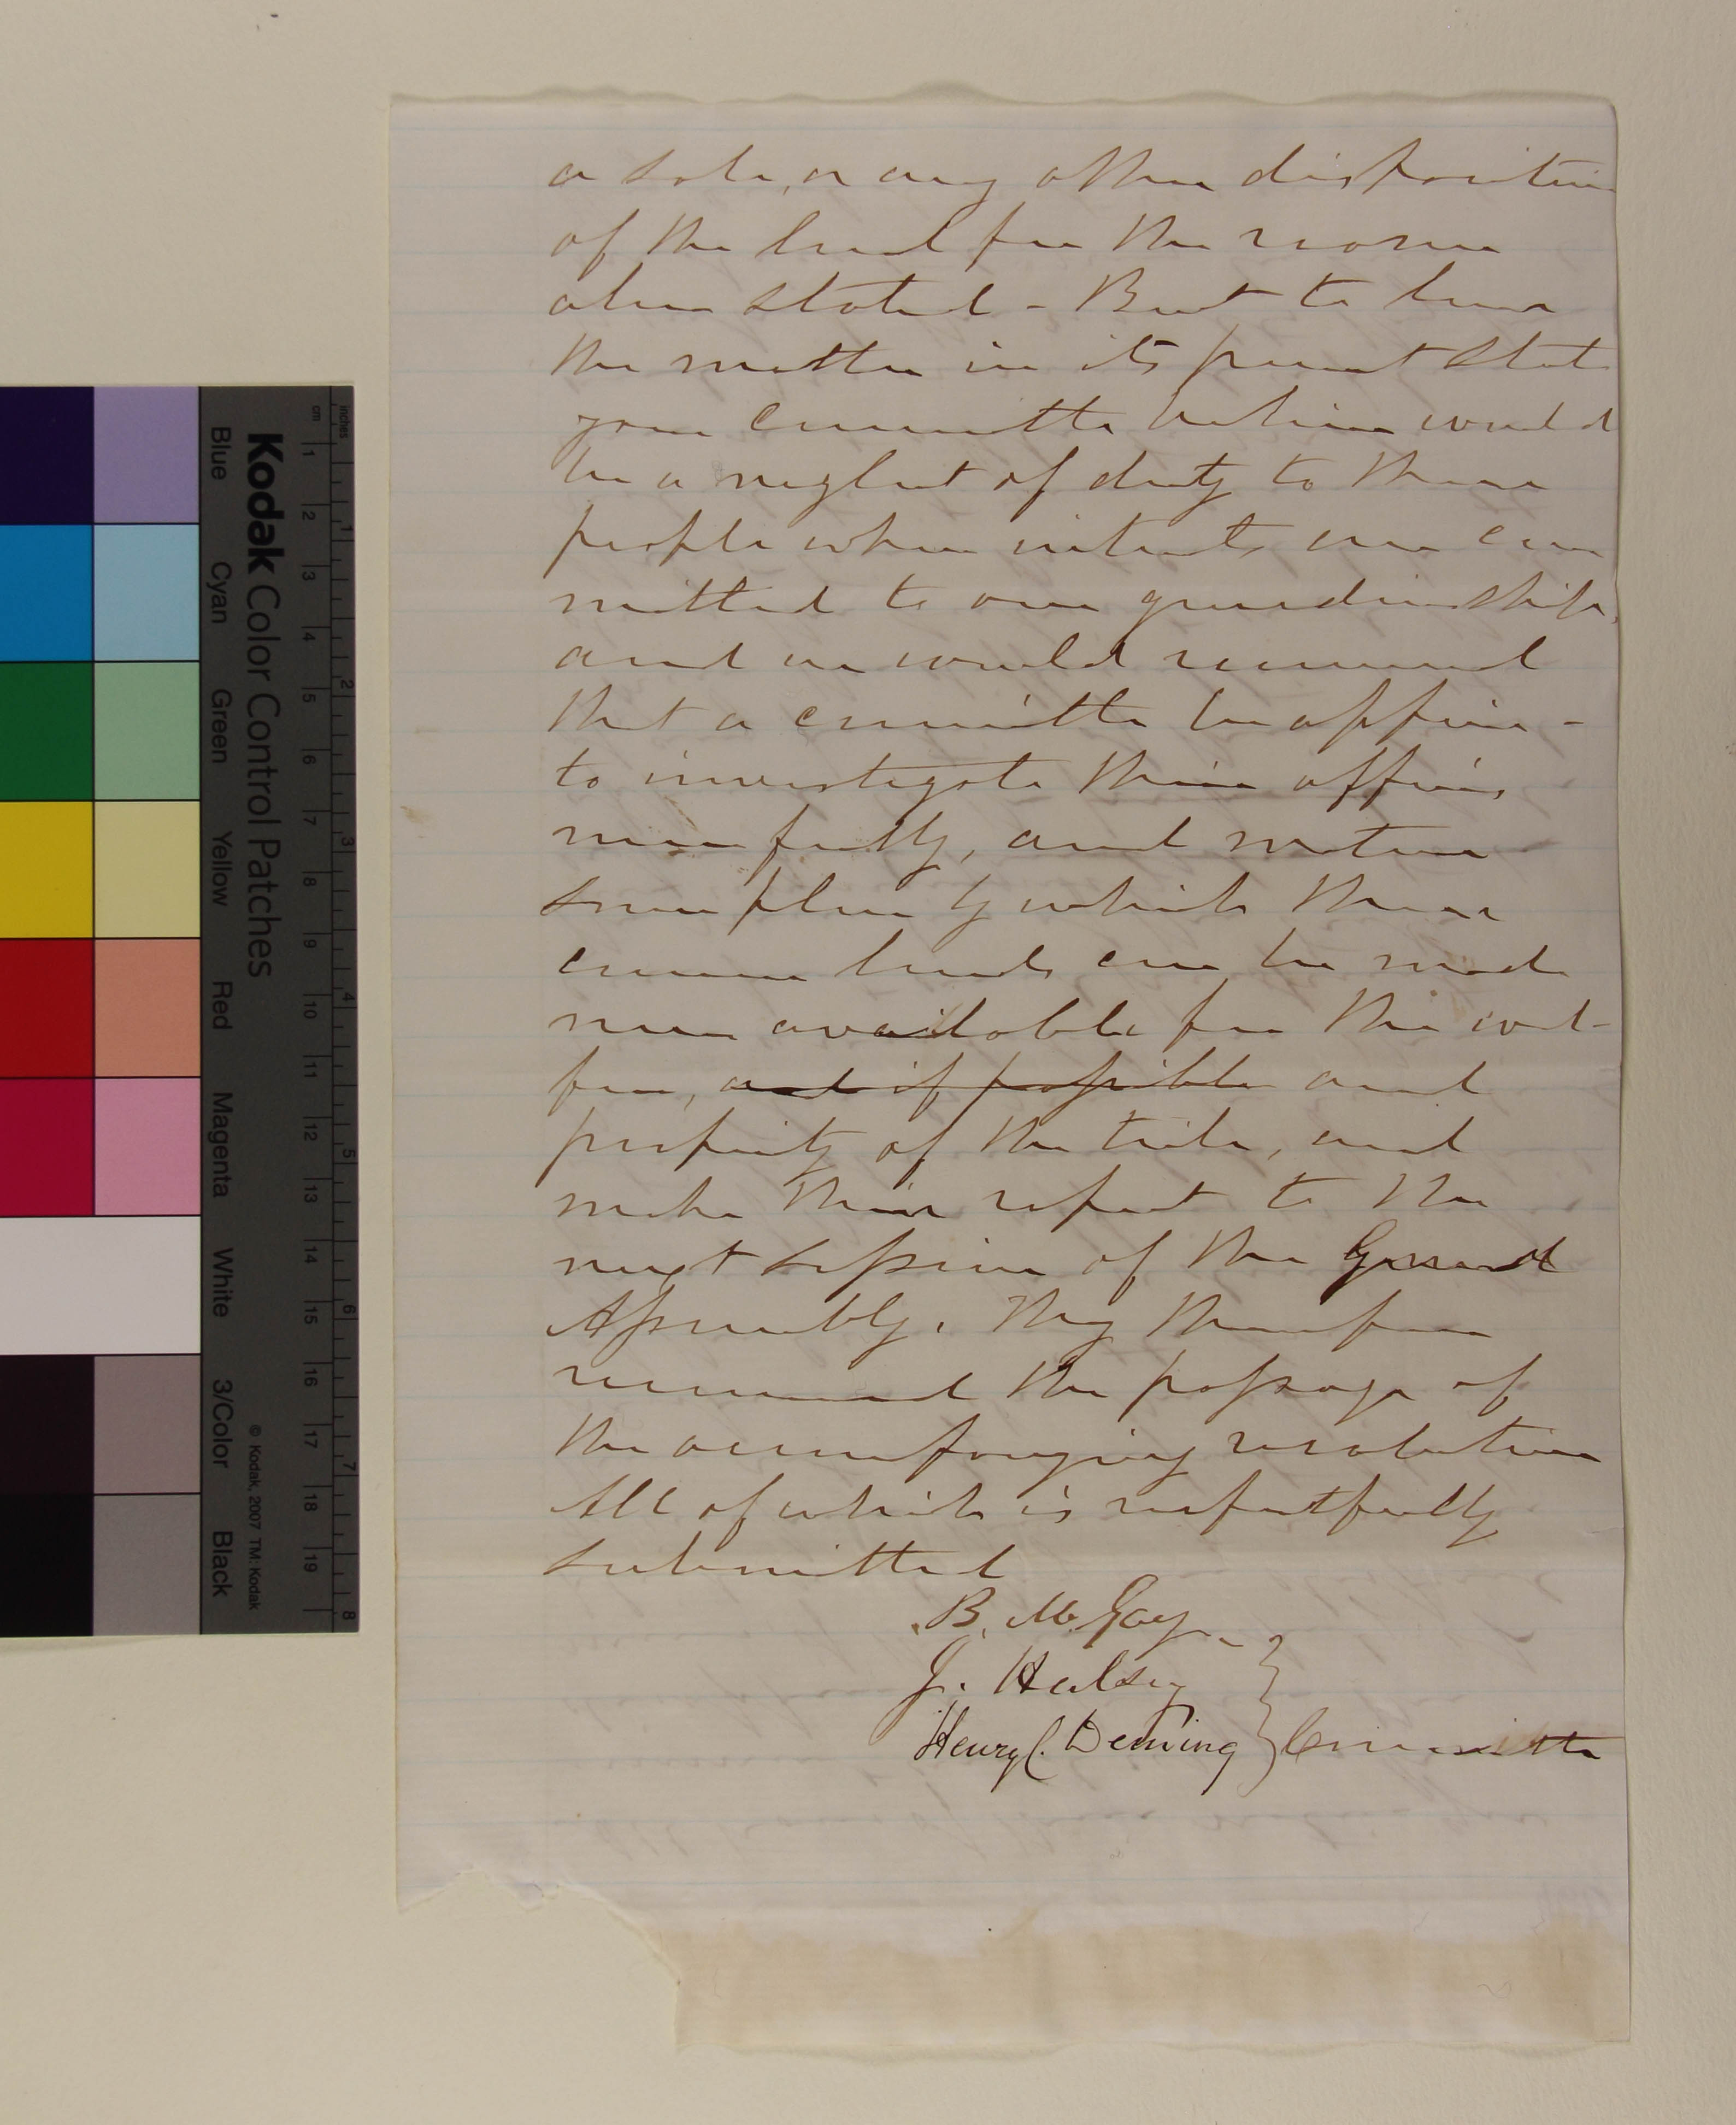 a sale, or any other disposition
of the land for the reasons
above stated - But to leave
the matter in its present state
your committee believe would
be a neglect of duty to these
people whose interests are com
mitted to our guardianship,
and we would recommend
that a committee be appoin -
to investigate their affairs
more fully, and mature
some plan by which these
common lands can be made
more available for the wel-
fare, and if possible and
prosperity of the tribe, and
make their report to the
next session of the General
Assembly. They therefore
recommend the passage of
the accompanying resolution
All of which is respectfully
submitted
B. M. Gay
J. Halsey
Henry C. Deming } Committee
Kodak Color Control Patches
Blue Cyan Green Yellow Red Magenta White 3/Color Black
© Kodak, 2007 TM: Kodak
cm 1 2 3 4 5 6 7 8 9 10 11 12 13 14 15 16 17 18 19
inches 1 2 3 4 5 6 7 8